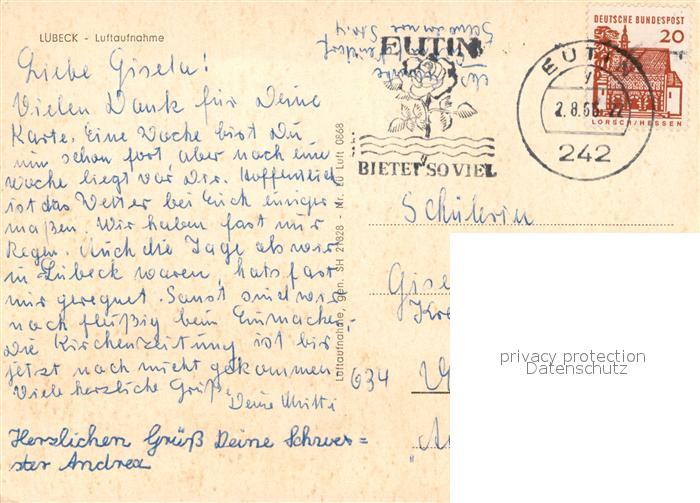 LÜBECK - Luftaufnahme
Liebe Gisela!
Vielen Dank für Deine
Karte. Eine Woche bist Du
nun schon fort, aber noch eine
Woche liegt vor Dir. Hoffentlich
ist das Wetter bei Euch einiger
maßen. Wir haben fast nur
Regen. Auch die Tage als wir
in Lübeck waren, hats fast
nur geregnet. Sonst sind wir
noch flußig beim Einmachen.
Die Kirchenzeitung ist bis
jetzt noch nicht gekommen.
Viele herzliche Grüße
Deine Mutti
Herzlichen Grüß Deine Schwes=
ter Andrea
Luftaufnahme, gen. SH 21828 - Nr. Lü Luft 0868
EUTIN
BIETET SO VIEL
EUTIN
2.8.66
242
DEUTSCHE BUNDESPOST
20
LORSCH/HESSEN
Schülerin
Gise
Kre
634
privacy protection
Datenschutz